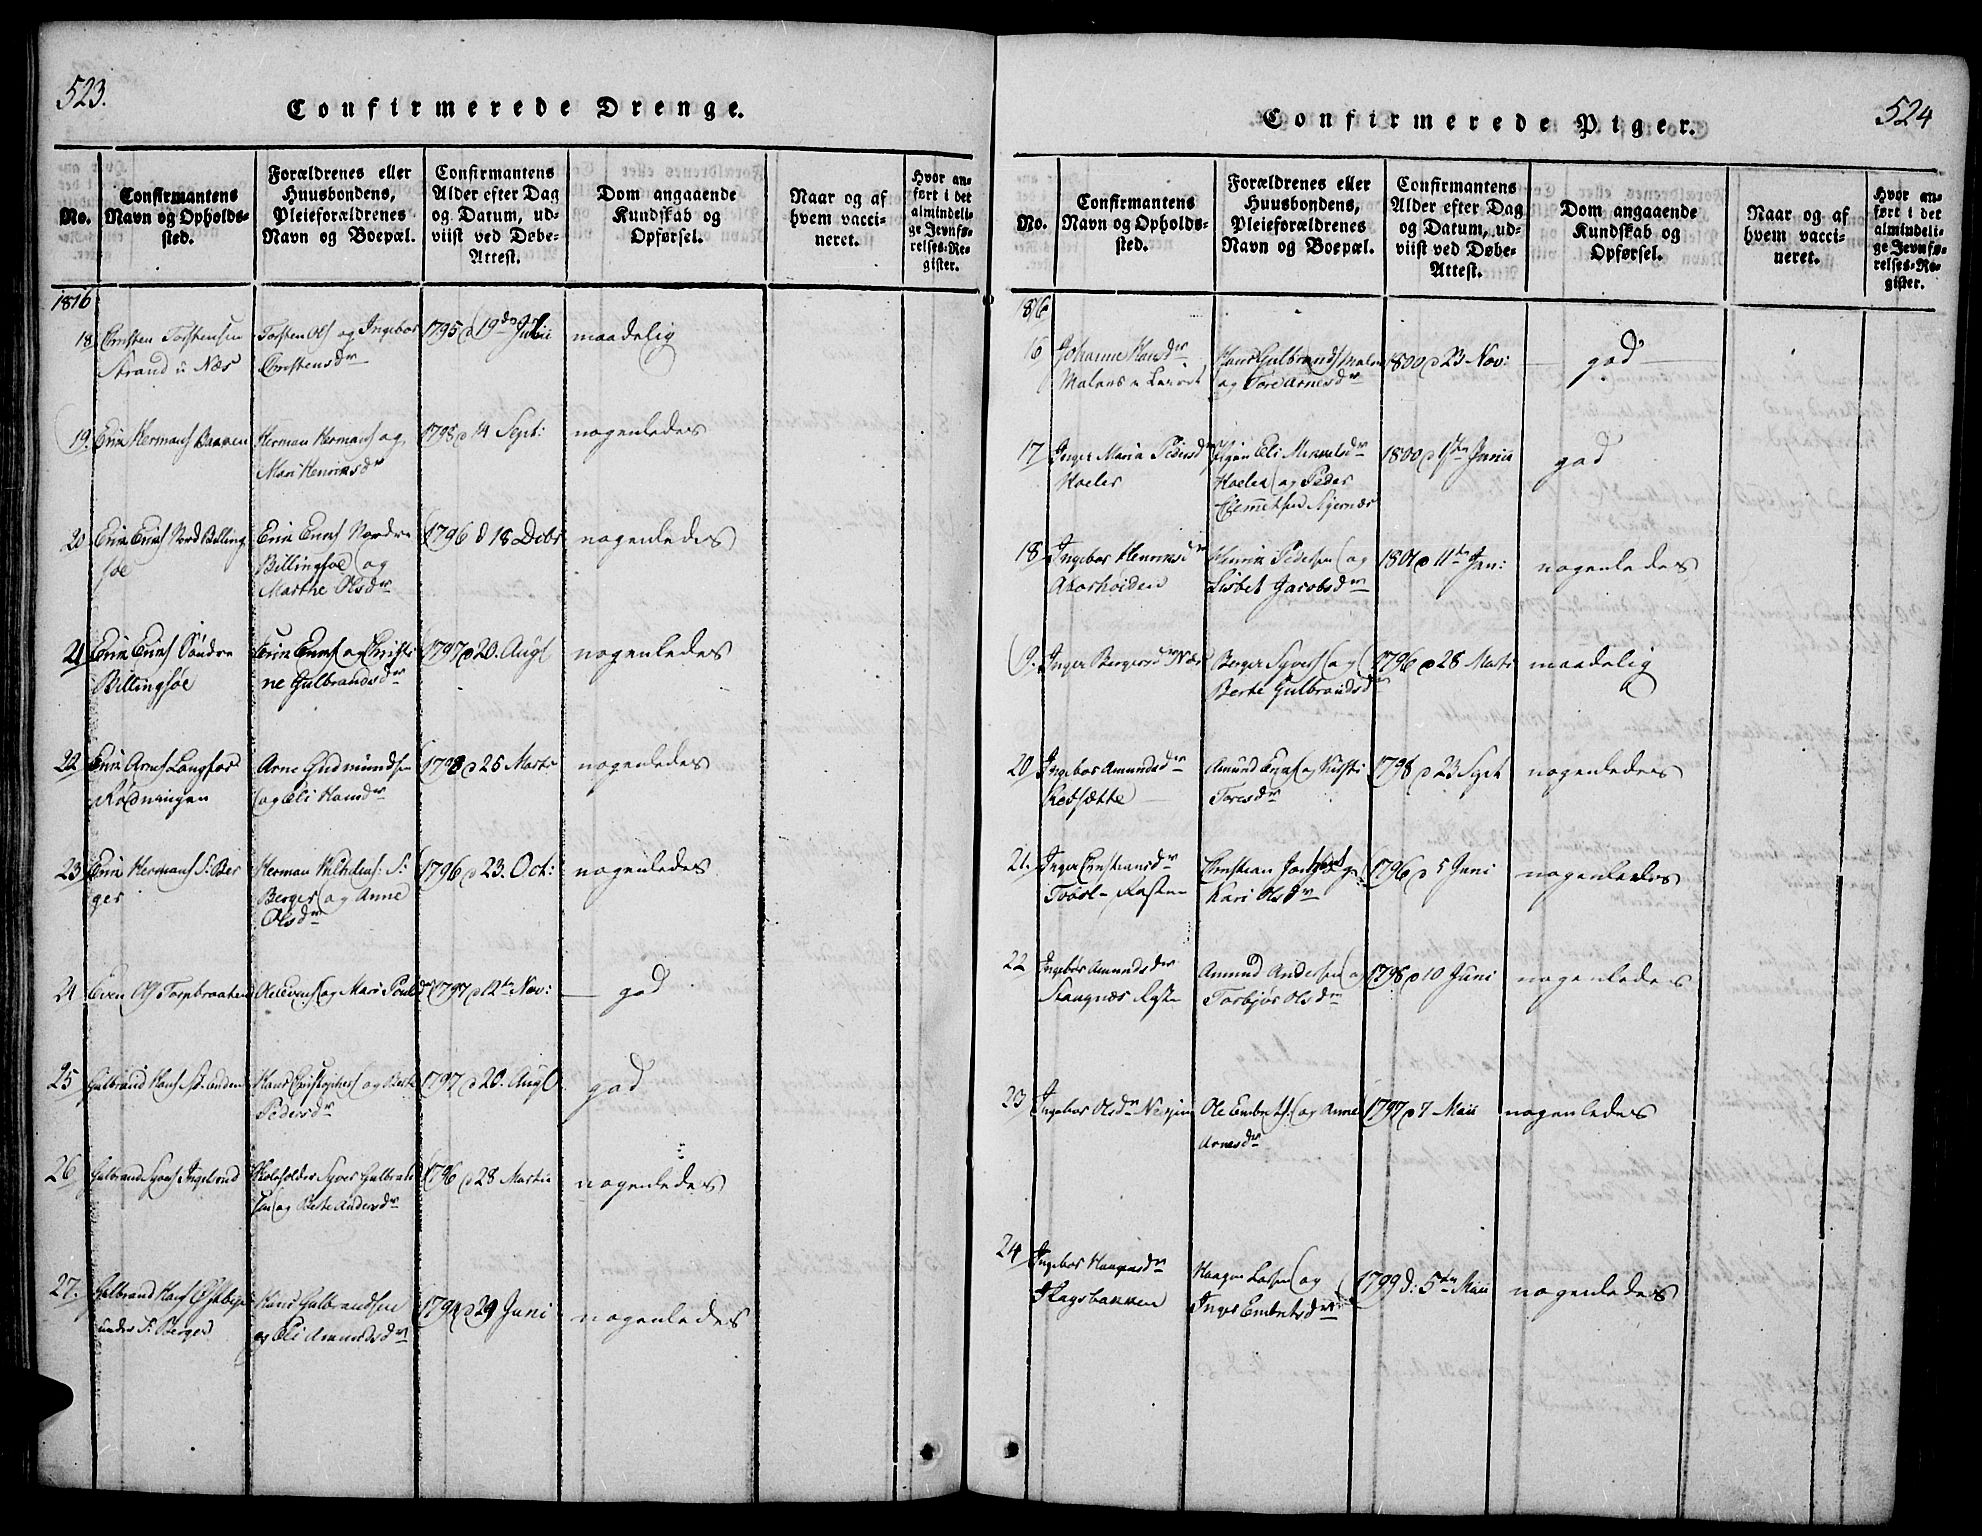 523.
Confirmerede Drenge.
No.
Confirmantens
Navn og Opholds-
sted.
Forældrenes eller
Huusbondens,
Pleieforældrenes
Navn og Boepæl.
Confirmantens
Alder efter Dag
og Datum, ud-
viist ved Døbe-
Attest.
Dom angaaende
Kundskab og
Opførsel.
Naar og af
hvem vacci-
neret.
Hvor an-
ført i det
almindeli-
ge Jevnfø-
relses-Re-
gister.
1816
18 Christen Torstensen
Strand i Næs
Torsten Ols og Ingebor
Christensdr
1795 d 19de Julii
maadelig
19. Erik Hermans Baaven
Herman Hermans og
Mari Henriksdr
1798 d 14 Sept:
nogenledes
20 Erik Eriks Nord Billing
soe
Erik Eriks Nordre
Billingsoe og
Marthe Olsdr
1796 d 18 Debr
nogenledes
21 Erik Eriks Søndre
Billingsoe
Erik Eriks og Christi
ne Gulbrandsdr
1797 d 20. Augs
nogenledes
22 Erik Arnes
Rødningen
Arne Gudmundsen
og Eli Hansdr
1798 d 25 Marts
nogenledes
23 Erik Hermans S: Ber
ger
Herman S:
Berger og Anne
Olsdr
1796 d 23. Oct:
nogenledes
24 Even Ols Torpbraaten
Ole Evens og Mari Poulsdr
1797 d 12te Nov:
god
25 Gulbrand Hans
Hans Christophers og Berte
Pedersdr
1797 d 20. Augs
god
26 Gulbrand Syvers Ingelsrud
Syver Gulbrand
sen og Berte Andersdr
1796 d 28 Martii
nogenledes
27. Gulbrand Hans
under S: Berger
Hans Gulbrandsen
og Eli Amundsdr
1794 d 29 Juni
nogenledes
524
Confirmerede Piger.
No.
Confirmantens
Navn og Opholds-
sted.
Forældrenes eller
Huusbondens,
Pleieforældrenes
Navn og Boepæl.
Confirmantens
Alder efter Dag
og Datum, ud-
viist ved Døbe-
Attest.
Dom angaaende
Kundskab og
Opførsel.
Naar og af
hvem vacci-
neret.
Hvor an-
ført i det
almindeli-
ge Jevnfø-
relses-Re-
gister.
1816
16 Johanne Hansdr
Hans Gulbrands
og Tore Arnesdr
1800 d 23 Nov:
god
17 Inger Maria Pedersdr
Hoeler
Pigen Eli Mikkelsdr
og Peder
Clemetsen Sigernæs
1800 d 1ste Junii
god
18 Ingebor Henriksdr
Henrik Pedersen og
Lisbet Jacobsdr
1801 d 11te Jan:
nogenledes
9. Inger Bergersdr Næs
Berger Syvers og
Berte Gulbrandsdr
1796 d 28 Marts
maadelig
20 Ingebor Amundsdr
Amund og Kirsti
Toresdr
1798 d 23 Sept
nogenledes
21. Inger Christiansdr
Christian
Kari Olsdr
1796 d 5 Juni
nogenledes
22 Ingebor Amundsdr
Amund Andersen og
Torbjør Olsdr
1798 d 10 Juni
nogenledes
23 Ingebor Olsdr
Ole Embrets: og Anne
Arnesdr
1797 d 7 Maii
nogenledes
24 Ingebor Haagensdr
Haagen Larsen og
Inger Embretsdr
1799 d: 5te Maii
nogenledes